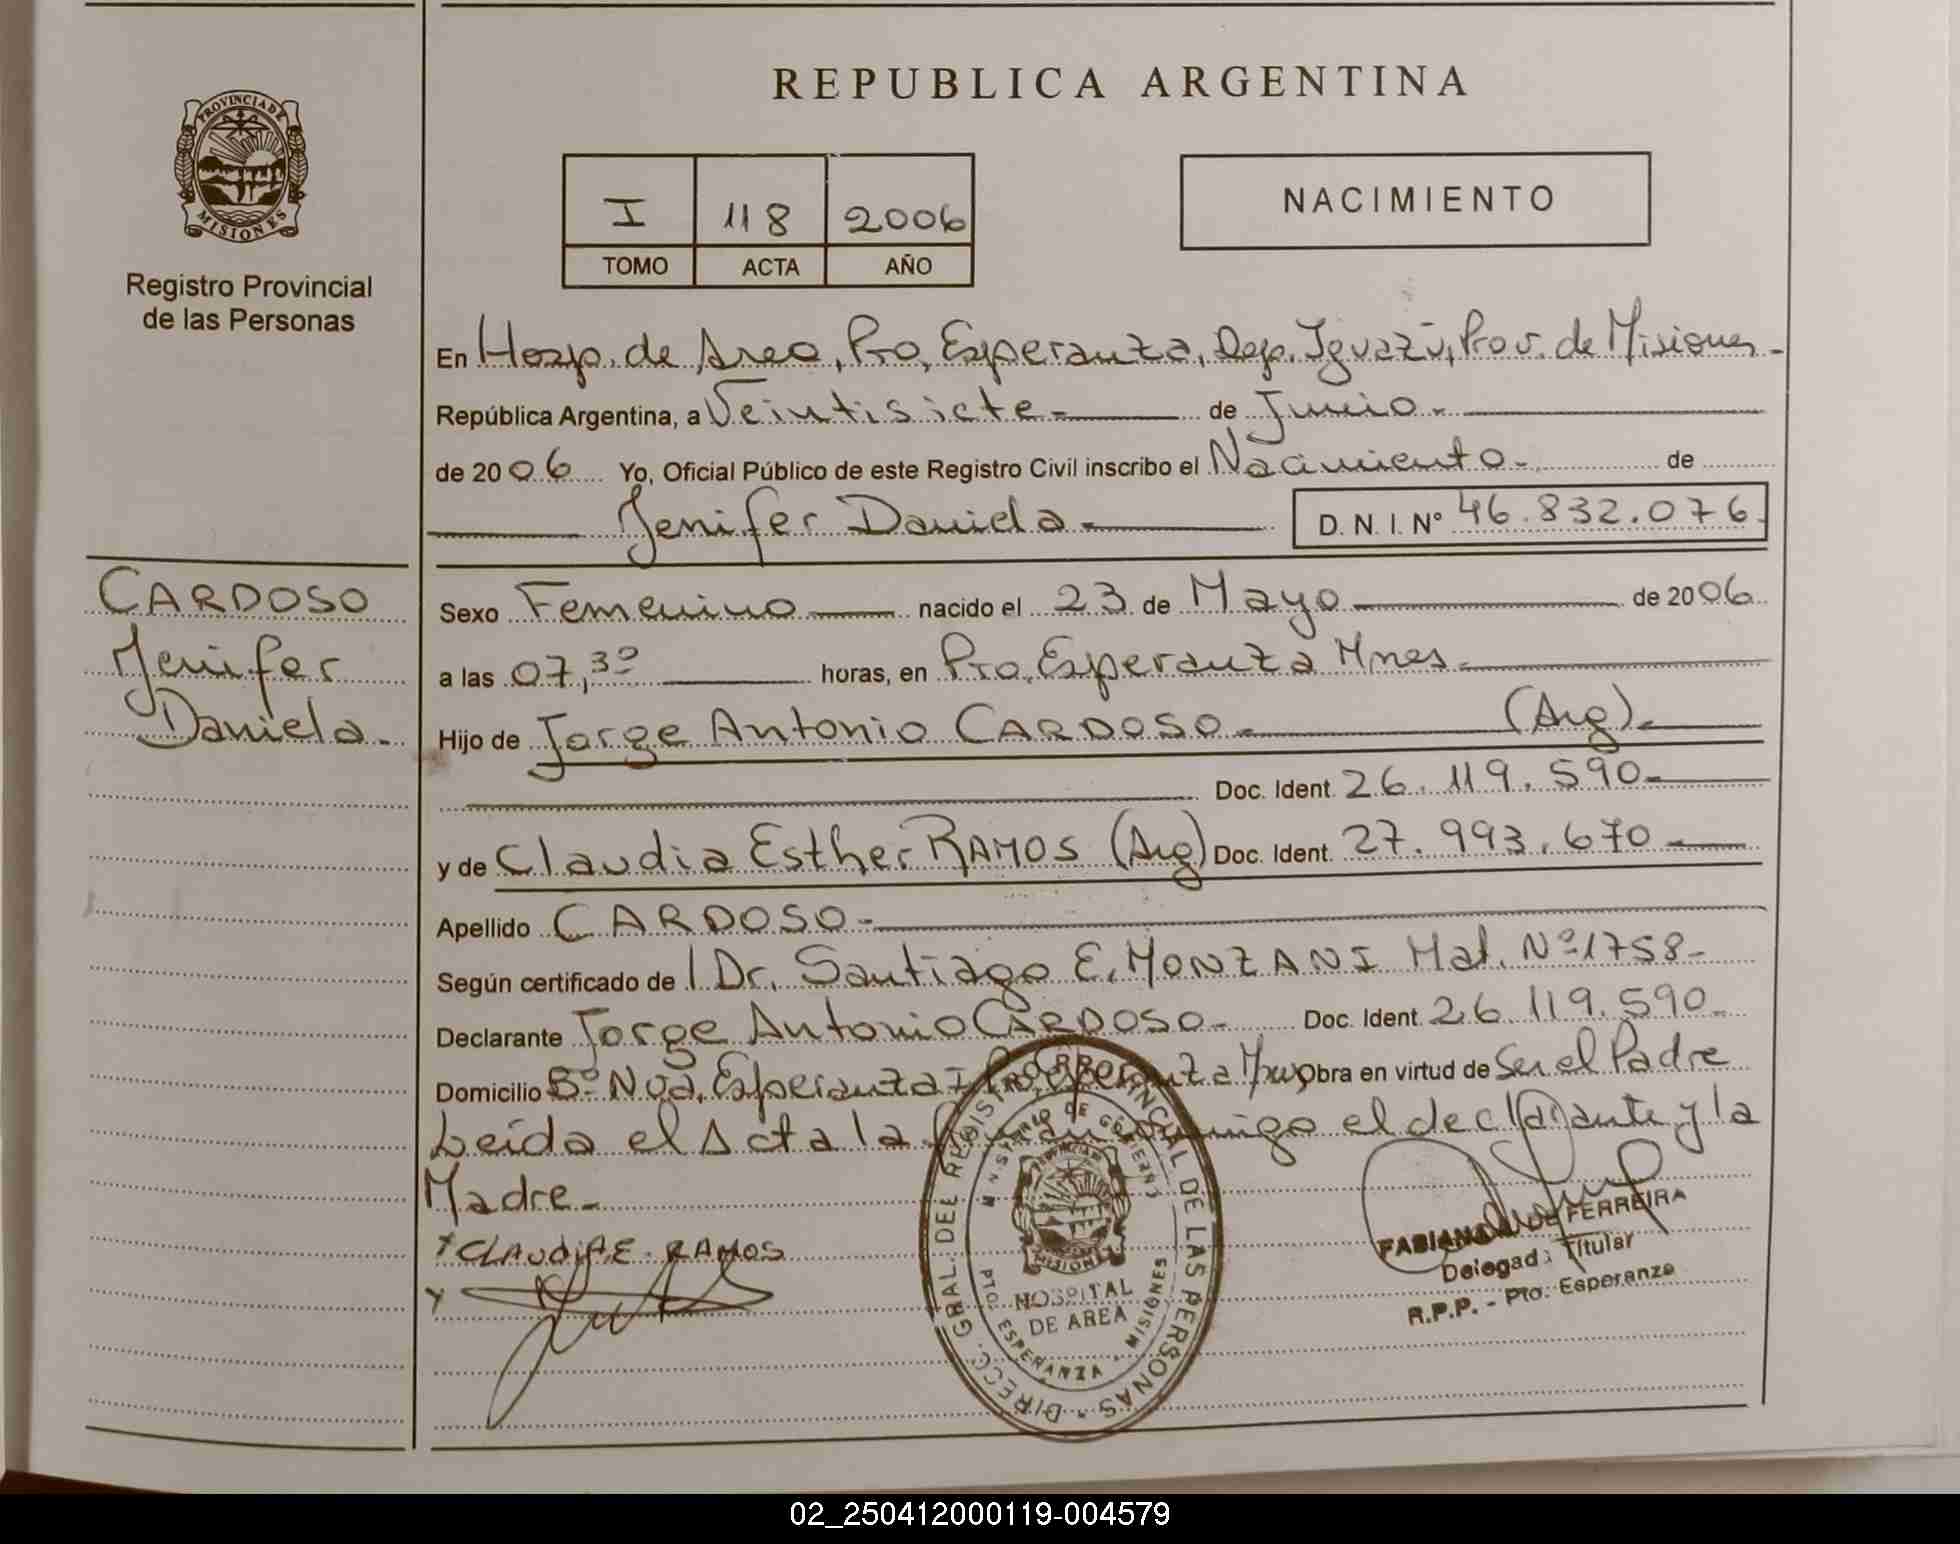 REPUBLICA ARGENTINA
PROVINCIA DE
MISIONES
Registro Provincial
de las Personas
I 118 2006
TOMO ACTA AÑO
NACIMIENTO
En Hosp. de Area, Pto, Esperanza, Dep. Iguazú, Prov. de Misiones -
República Argentina, a Veintisiete - de Junio -
de 2006 Yo, Oficial Público de este Registro Civil inscribo el Nacimiento - de
Jenifer Daniela - D. N. I. Nº 46.832.076
CARDOSO
Jenifer
Daniela -
Sexo Femenino nacido el 23 de Mayo de 2006
a las 07,30 horas, en Pto, Esperanza Mnes -
Hijo de Jorge Antonio CARDOSO - (Arg) -
Doc. Ident. 26.119.590 -
y de Claudia Esther RAMOS (Arg) Doc. Ident. 27.993.670 -
Apellido CARDOSO -
Según certificado de Dr. Santiago E. MONZANI Mat. Nº 1758 -
Declarante Jorge Antonio CARDOSO - Doc. Ident. 26.119.590 -
Domicilio Bº Nva. Esperanza I Pto Esperanza Obra en virtud de Ser el Padre
Leida el Acta la el declarante y la
Madre -
CLAUDIA E. RAMOS
DIRECC. GRAL. DEL REGISTRO PROVINCIAL DE LAS PERSONAS
MINISTERIO DE GOBIERNO
MISIONES
HOSPITAL
DE AREA
PTO. ESPERANZA - MISIONES
DE FERREIRA
Delegada Titular
R.P.P. - Pto. Esperanza
02_250412000119-004579